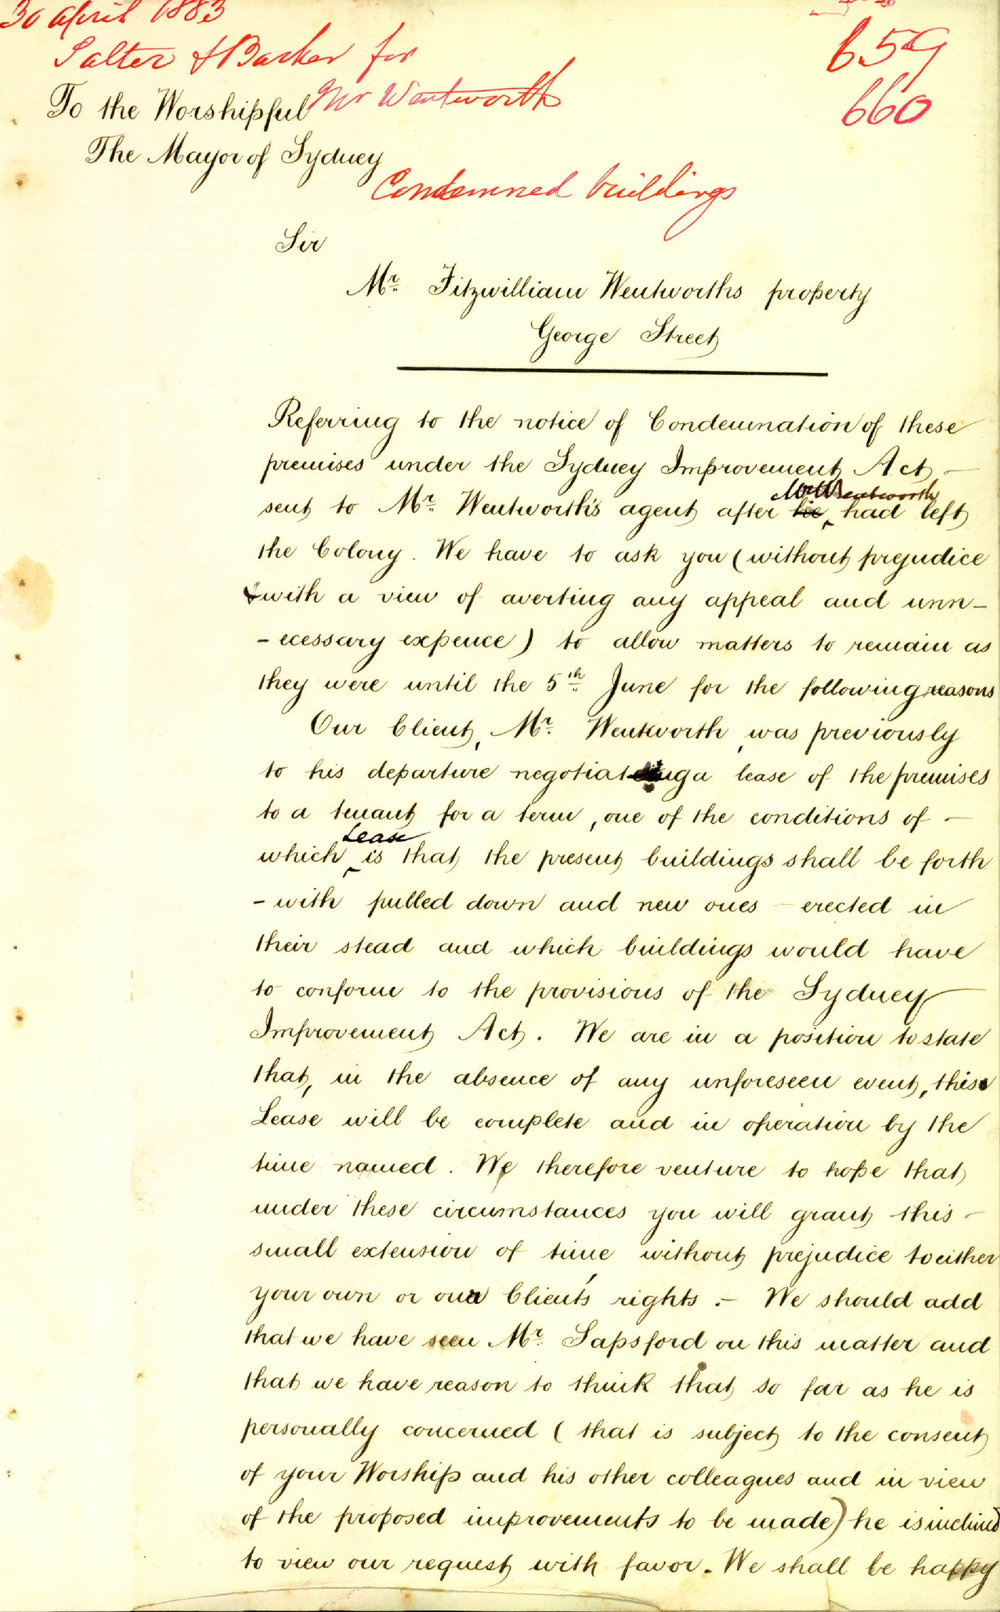 30 April 1883
Salter & Barker for
Mr Wentworth
659
660
To the Worshipful
The Mayor of Sydney
Condemned buildings
Sir
Mr. Fitzwilliam Wentworths property
George Street
Referring to the notice of Condemnation of these
premises under the Sydney Improvement Act –
Mr Wentworth
sent to Mr. Wentworth's agent after he had left
the Colony. We have to ask you (without prejudice
& with a view of averting any appeal and unn-
-ecessary expence) to allow matters to remain as
they were until the 5th June for the following reasons
Our Client, Mr. Wentworth, was previously
to his departure negotiating a lease of the premises
to a tenant for a term, one of the conditions of –
Lease
which is that the present buildings shall be forth
-with pulled down and new ones erected in
their stead and which buildings would have
to conform to the provisions of the Sydney
Improvement Act. We are in a position to state
that, in the absence of any unforeseen event, this
Lease will be complete and in operation by the
time named. We therefore venture to hope that
under these circumstances you will grant this –
small extension of time without prejudice to either
your own or our Client's rights :– We should add
that we have seen Mr. Sapsford on this matter and
that we have reason to think that so far as he is
personally concerned (that is subject to the consent
of your Worship and his other colleagues and in view
of the proposed improvements to be made) he is inclined
to view our request with favor. We shall be happy